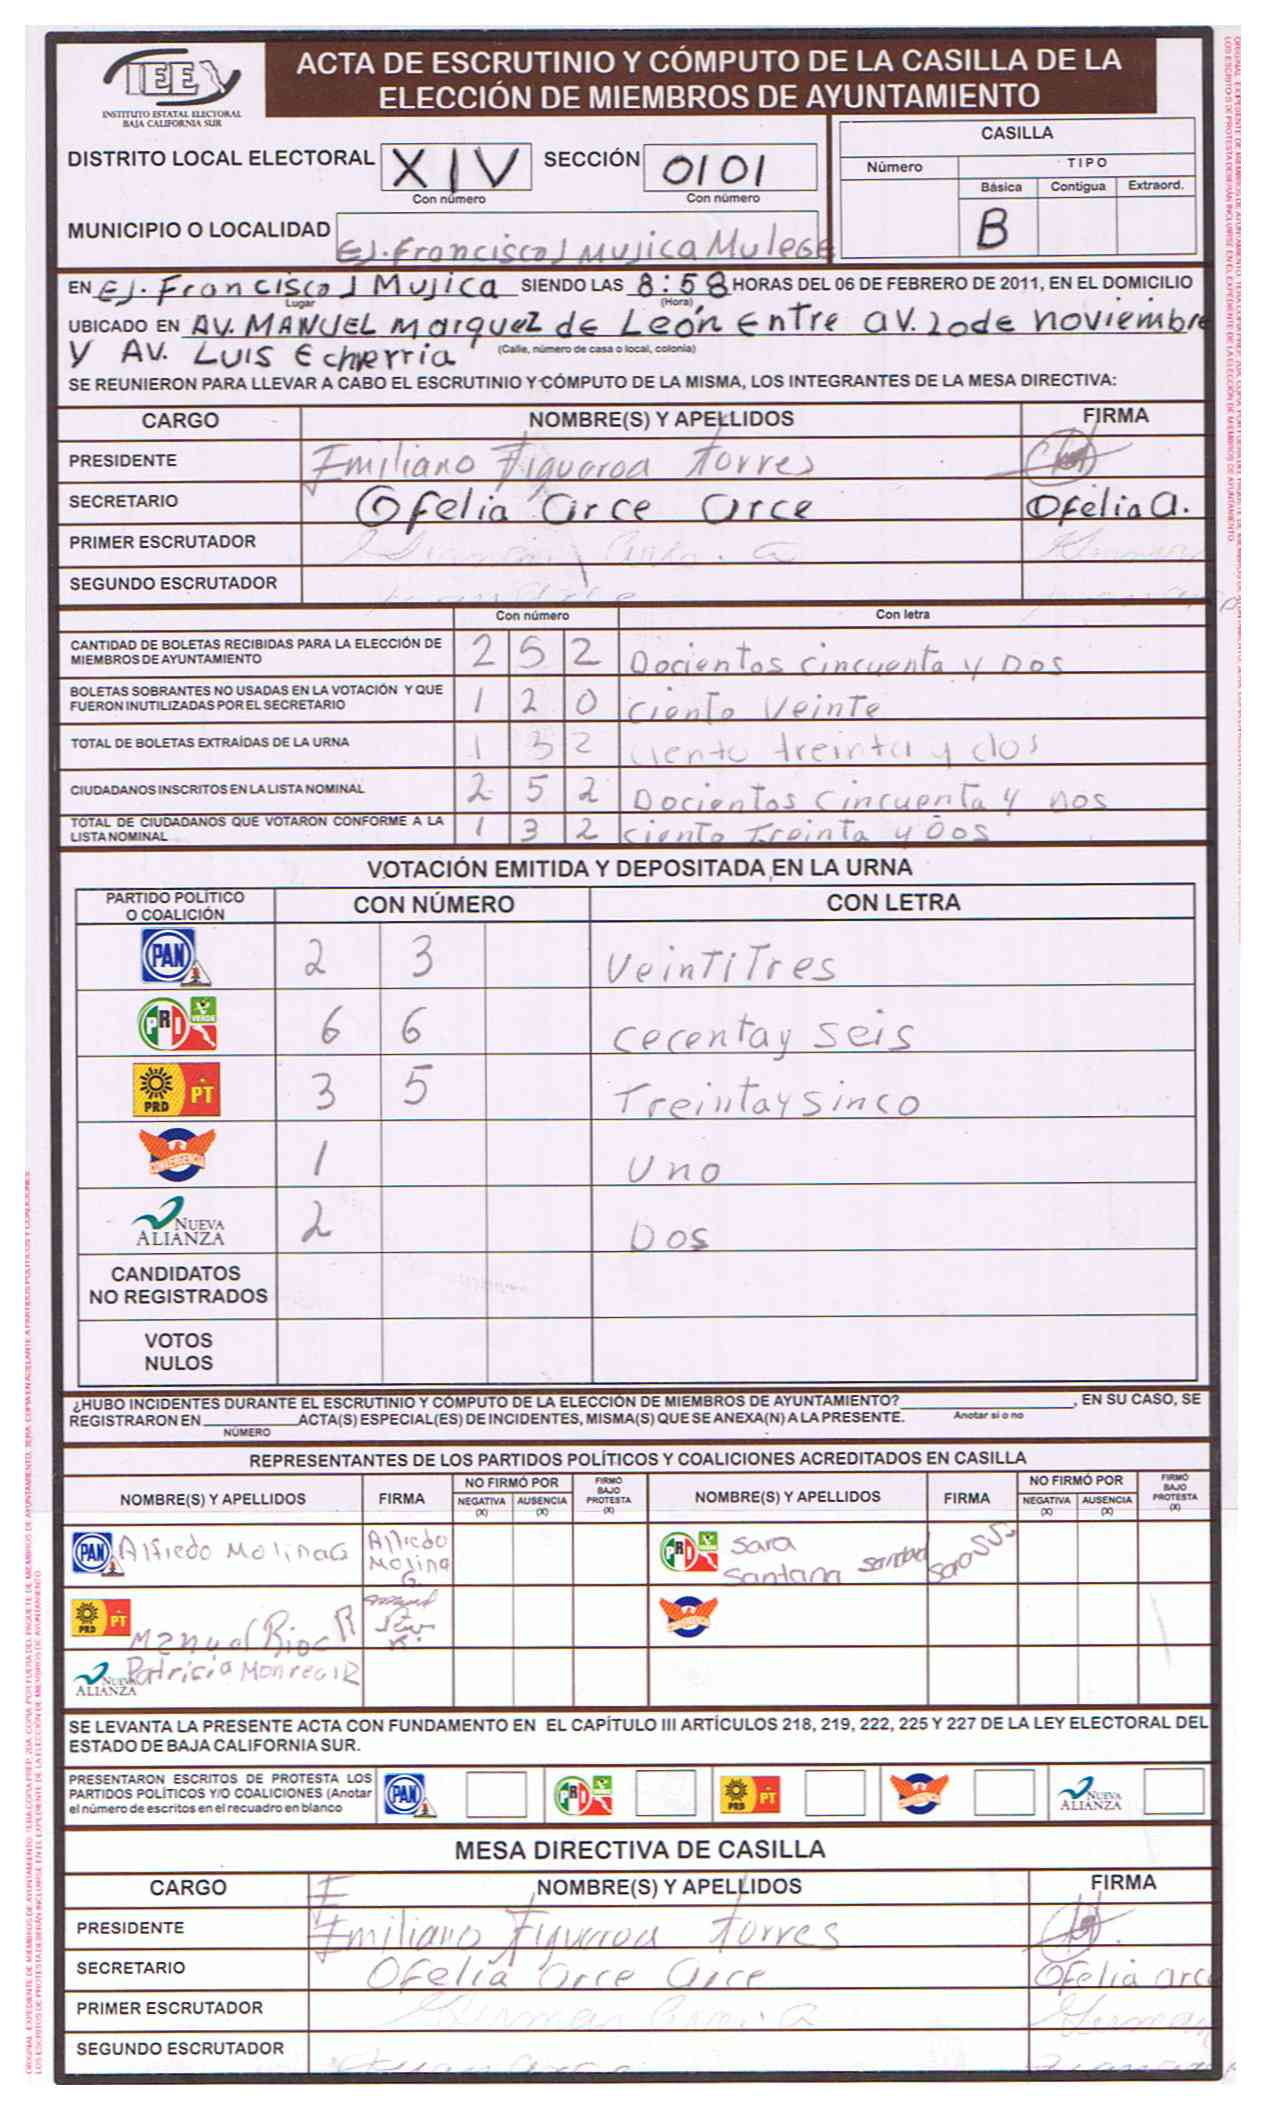 IEE
INSTITUTO ESTATAL ELECTORAL
BAJA CALIFORNIA SUR
ACTA DE ESCRUTINIO Y CÓMPUTO DE LA CASILLA DE LA
ELECCIÓN DE MIEMBROS DE AYUNTAMIENTO
DISTRITO LOCAL ELECTORAL XIV SECCIÓN 0101
Con número Con número
CASILLA
Número TIPO
Básica Contigua Extraord.
B
MUNICIPIO O LOCALIDAD EJ. Francisco J Mujica Mulege
EN EJ. Francisco J Mujica SIENDO LAS 8:58 HORAS DEL 06 DE FEBRERO DE 2011, EN EL DOMICILIO
Lugar (Hora)
UBICADO EN AV. MANUEL Marquez de León Entre av. 20 de noviembre
Y AV. Luis Echerria (Calle, número de casa o local, colonia)
SE REUNIERON PARA LLEVAR A CABO EL ESCRUTINIO Y CÓMPUTO DE LA MISMA, LOS INTEGRANTES DE LA MESA DIRECTIVA:
CARGO NOMBRE(S) Y APELLIDOS FIRMA
PRESIDENTE Emiliano Figueroa torres
SECRETARIO Ofelia arce arce Ofelia a.
PRIMER ESCRUTADOR German
SEGUNDO ESCRUTADOR
Con número Con letra
CANTIDAD DE BOLETAS RECIBIDAS PARA LA ELECCIÓN DE
MIEMBROS DE AYUNTAMIENTO 2 5 2 Docientos cincuenta y Dos
BOLETAS SOBRANTES NO USADAS EN LA VOTACIÓN Y QUE
FUERON INUTILIZADAS POR EL SECRETARIO 1 2 0 ciento Veinte
TOTAL DE BOLETAS EXTRAÍDAS DE LA URNA 1 3 2 ciento treinta y dos
CIUDADANOS INSCRITOS EN LA LISTA NOMINAL 2 5 2 Docientos cincuenta y Dos
TOTAL DE CIUDADANOS QUE VOTARON CONFORME A LA
LISTA NOMINAL 1 3 2 ciento Treinta y Dos
VOTACIÓN EMITIDA Y DEPOSITADA EN LA URNA
PARTIDO POLÍTICO
O COALICIÓN CON NÚMERO CON LETRA
PAN 2 3 VeinTiTres
PRI VERDE 6 6 cecentay seis
PRD PT 3 5 Treintaysinco
CONVERGENCIA 1 uno
NUEVA
ALIANZA 2 Dos
CANDIDATOS
NO REGISTRADOS
VOTOS
NULOS
¿HUBO INCIDENTES DURANTE EL ESCRUTINIO Y CÓMPUTO DE LA ELECCIÓN DE MIEMBROS DE AYUNTAMIENTO? , EN SU CASO, SE
REGISTRARON EN ACTA(S) ESPECIAL(ES) DE INCIDENTES, MISMA(S) QUE SE ANEXA(N) A LA PRESENTE. Anotar si o no
NÚMERO
REPRESENTANTES DE LOS PARTIDOS POLÍTICOS Y COALICIONES ACREDITADOS EN CASILLA
NOMBRE(S) Y APELLIDOS FIRMA NO FIRMÓ POR NEGATIVA (X) AUSENCIA (X) FIRMÓ BAJO PROTESTA (X) NOMBRE(S) Y APELLIDOS FIRMA NO FIRMÓ POR NEGATIVA (X) AUSENCIA (X) FIRMÓ BAJO PROTESTA (X)
PAN Alfredo Molina G Alfredo Molina G. PRI Sara Santana Sara SS
PRD PT Manuel Rios R
NUEVA ALIANZA Patricia Monreal R
SE LEVANTA LA PRESENTE ACTA CON FUNDAMENTO EN EL CAPÍTULO III ARTÍCULOS 218, 219, 222, 225 Y 227 DE LA LEY ELECTORAL DEL
ESTADO DE BAJA CALIFORNIA SUR.
PRESENTARON ESCRITOS DE PROTESTA LOS
PARTIDOS POLÍTICOS Y/O COALICIONES (Anotar
el número de escritos en el recuadro en blanco PAN PRI PRD PT NUEVA ALIANZA
MESA DIRECTIVA DE CASILLA
CARGO NOMBRE(S) Y APELLIDOS FIRMA
PRESIDENTE Emiliano Figueroa torres
SECRETARIO Ofelia arce arce Ofelia arce
PRIMER ESCRUTADOR German
SEGUNDO ESCRUTADOR